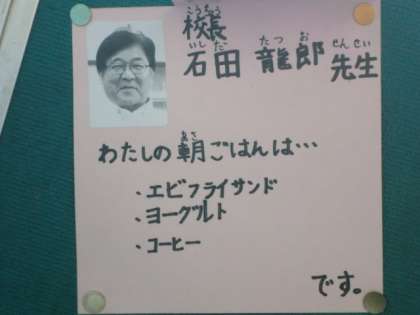 こうちょう
校長
いしだ たつお せんせい
石田 龍郎 先生
あさ
わたしの朝ごはんは…
・エビフライサンド
・ヨーグルト
・コーヒー
です。